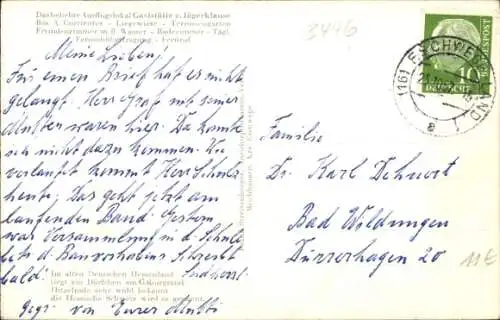 Das beliebte Ausflugslokal Gaststätte z. Jägerklause
Bes. A. - Liegewiese - Terrassengarten
Fremdenzimmer m. fl. Wasser - Bade - Tägl.
Fernsehübertragung -
3446
Meine Lieben!
Für einen Brief hat es nicht
gelangt. Herr Graf mit seiner
waren hier. Da konnte
ich nicht dazu kommen. Wie
verlautet kommt Herr Schulz
heute. Das geht jetzt am
laufenden Band. Gestern
war Versammlung in d. Schule
d. Bauvorhabens. Schreibt
bald!
Im alten Deutschen Hessenland
liegt ein Dörfchen am
sehr wohl bekannt
die Hessische Schweiz wird es genannt.
Gegr. von Eurer Mutti
(16) ESCHWEGE LAND 1
a
10
DEUTSCHE BUNDESPOST
Familie
Dr. Karl Dehnert
Bad Wildungen
Dürrerhagen 20
11€